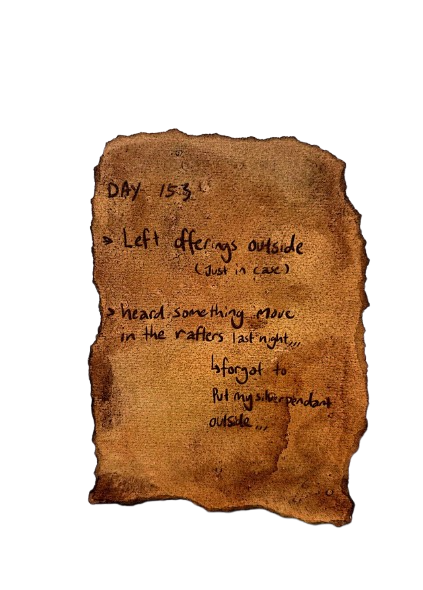 DAY 153
> Left offerings outside
(Just in case)
> heard something move
in the rafters last night,,,
↳ forgot to
Put my silver pendant
outside,,,